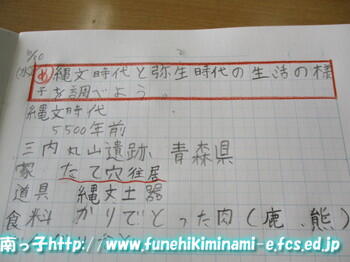 5/10
(水)
め 縄文時代と弥生時代の生活の様
子を調べよう。
縄文時代
5500年前
三内丸山遺跡 青森県
家 たて穴住居
道具 縄文土器
食料 かりでとった肉(鹿、熊)
南っ子http://www.funehikiminami-e.fcs.ed.jp